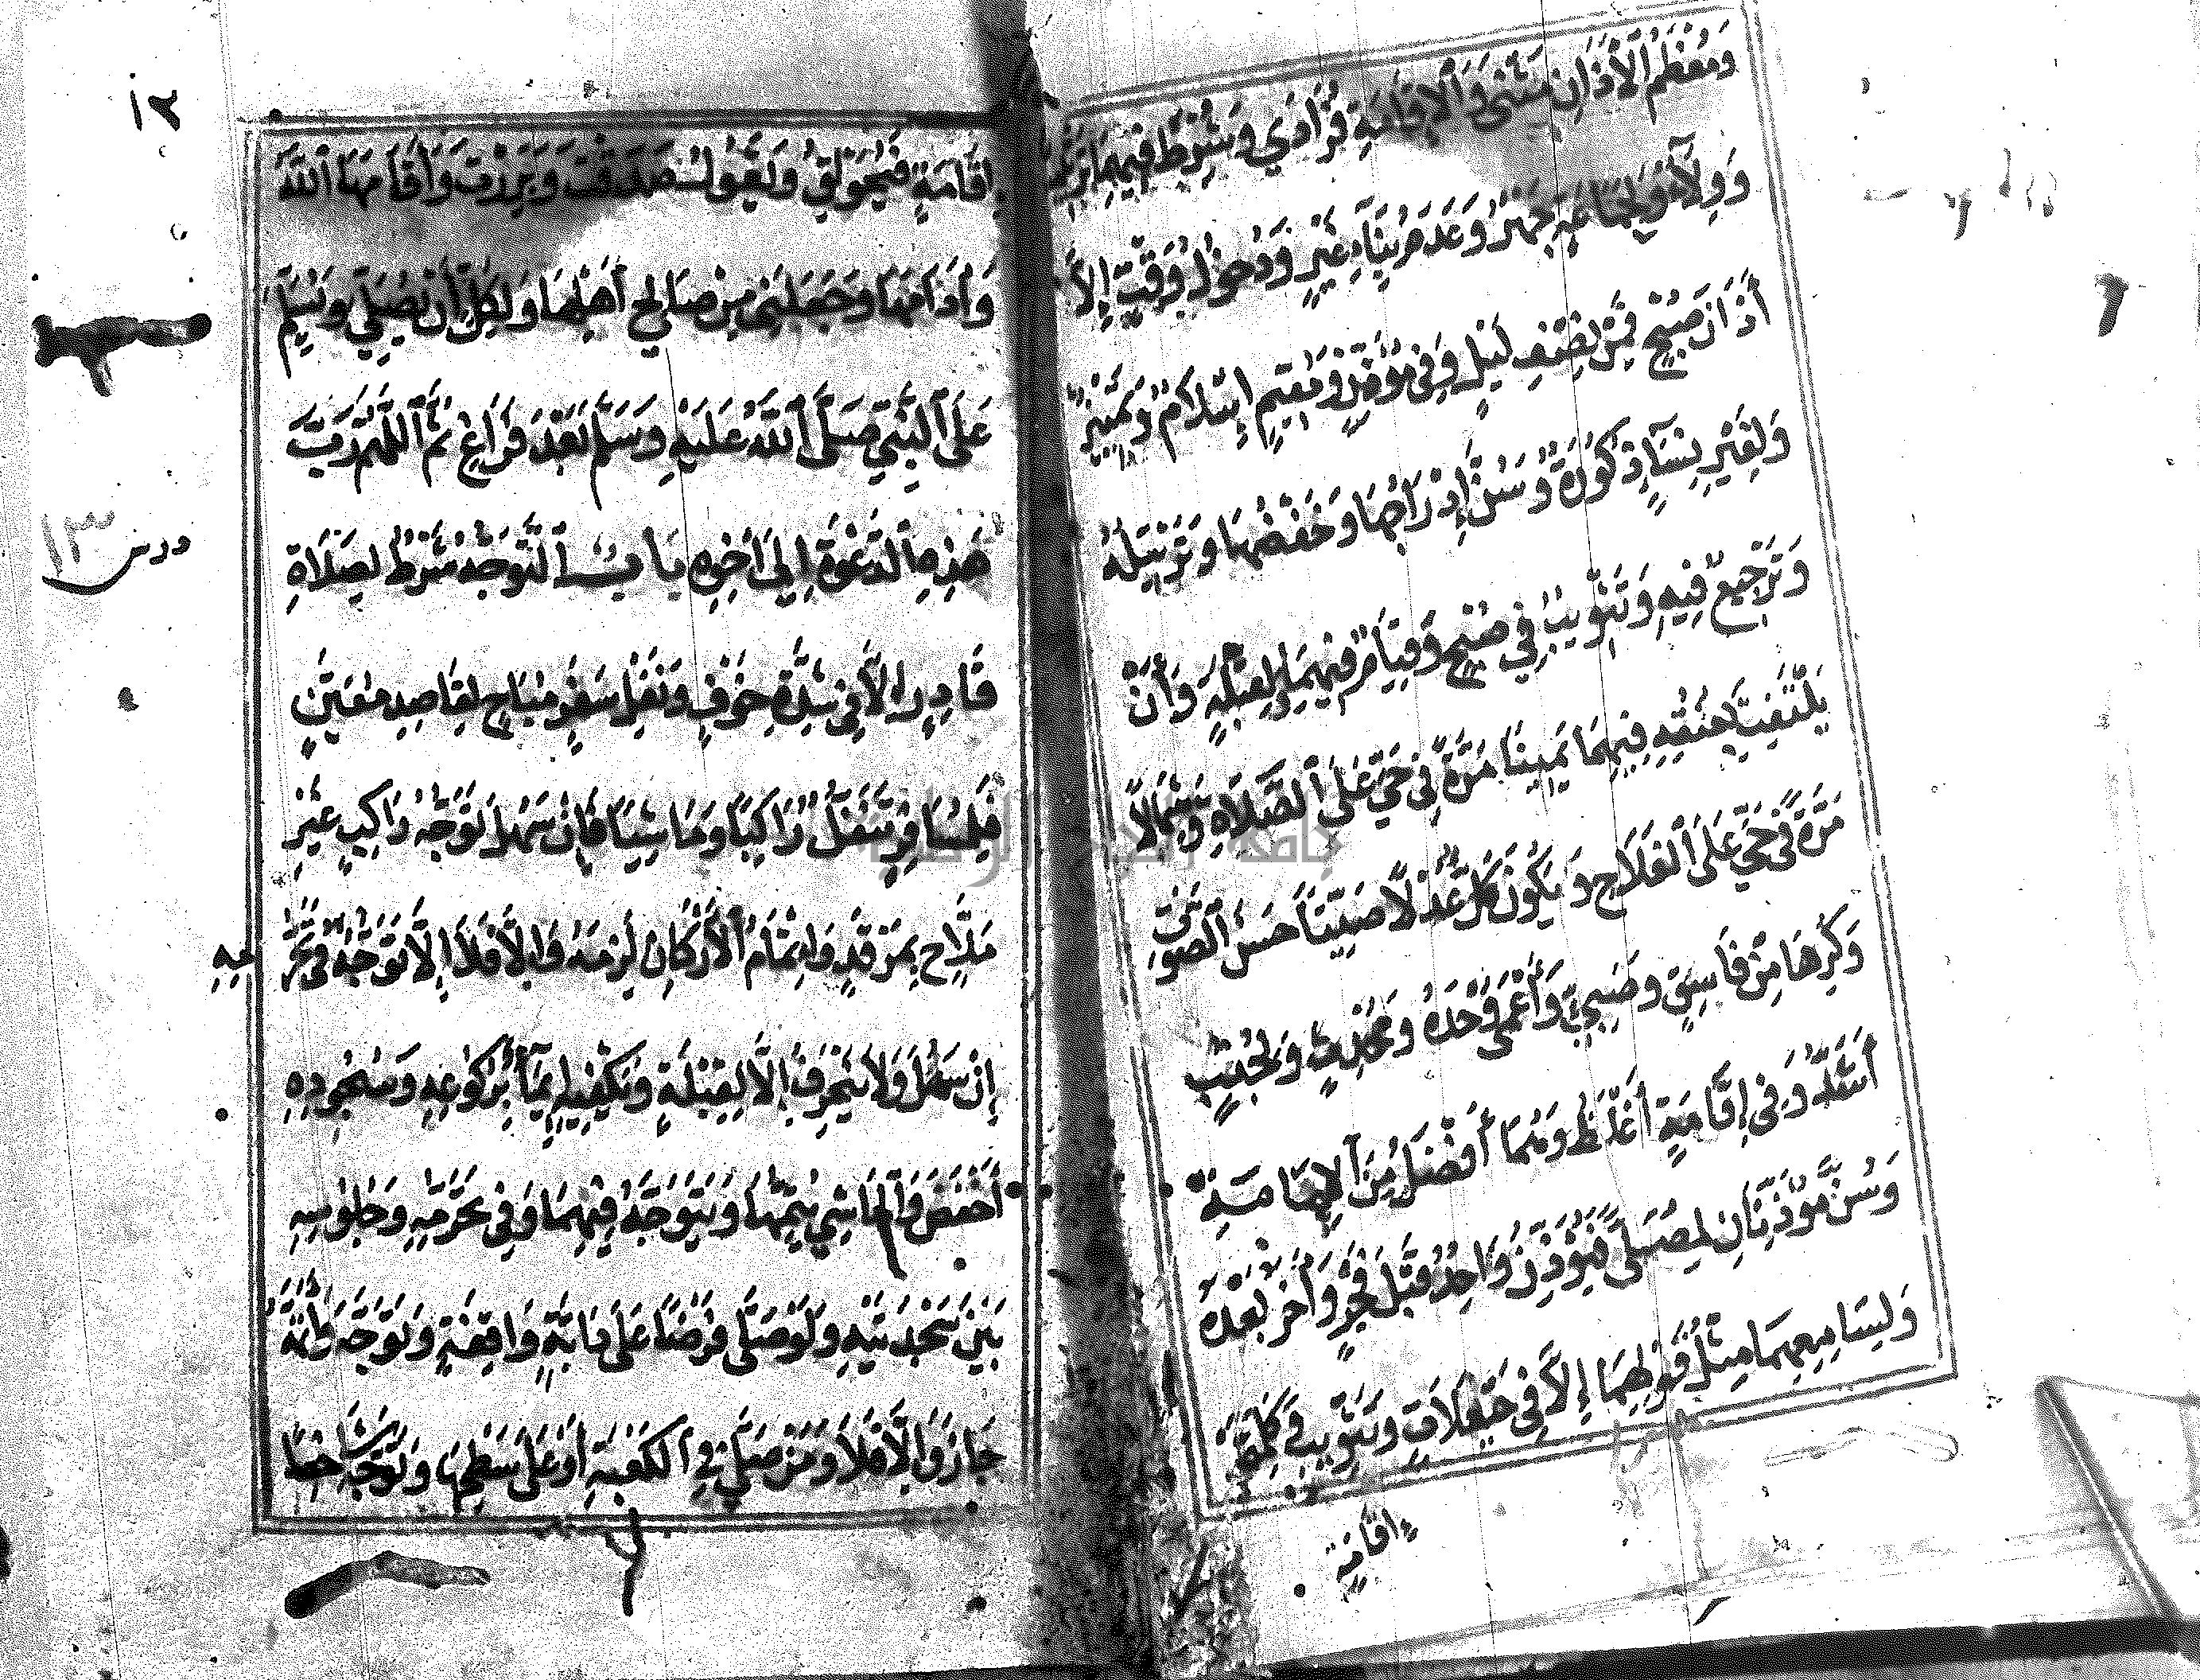 وَمُعْظَمُ الْأَذَانِ مَثْنَى وَالْإِقَامَةِ فُرَادَى وَشُرِطَ فِيهِمَا تَرْتِيبٌ
وَوِلَاءٌ وَلِجَمَاعَةٍ جَهْرٌ وَعَدَمُ بِنَاءِ غَيْرٍ وَدُخُولُ وَقْتٍ إِلَّا
أَذَانَ صُبْحٍ فَمِنْ نِصْفِ لَيْلٍ وَفِي مُؤَذِّنٍ وَمُقِيمٍ إِسْلَامٌ وَتَمْيِيزٌ
وَلِغَيْرِ نِسَاءٍ ذُكُورَةٌ وَسُنَّ إِدْرَاجُهَا وَخَفْضُهَا وَتَرْتِيلُهُ
وَتَرْجِيعٌ فِيهِ وَتَثْوِيبٌ فِي صُبْحٍ وَقِيَامٌ فِيهِمَا لِقِبْلَةٍ وَأَنْ
يَلْتَفِتَ بِعُنُقِهِ فِيهِمَا يَمِينًا مَرَّةً فِي حَيَّ عَلَى الصَّلَاةِ وَشِمَالًا
مَرَّةً فِي حَيَّ عَلَى الْفَلَاحِ وَيَكُونَ كُلٌّ عَدْلًا صَيِّتًا حَسَنَ الصَّوْتِ
وَكُرِهَا مِنْ فَاسِقٍ وَصَبِيٍّ وَأَعْمَى وَحْدَهُ وَمُحْدِثٍ وَلِجُنُبٍ
أَشَدُّ وَفِي إِقَامَةٍ أَغْلَظُ وَهُمَا أَفْضَلُ مِنَ الْإِمَامَةِ
وَسُنَّ مُؤَذِّنَانِ لِمُصَلًّى فَيُؤَذِّنُ وَاحِدٌ قَبْلَ فَجْرٍ وَآخَرُ بَعْدَهُ
وَلِسَامِعِهِمَا مِثْلُ قَوْلِهِمَا إِلَّا فِي حَيْعَلَاتٍ وَتَثْوِيبٍ وَكَلِمَتَيْ
إقَامَةٍ
١٢
إِقَامَةٍ فَيُحَوْلِقُ وَيَقُولُ صَدَقْتَ وَبَرِرْتَ وَأَقَامَهَا اللَّهُ
وَأَدَامَهَا وَجَعَلَنِي مِنْ صَالِحِي أَهْلِهَا وَلِكُلٍّ أَنْ يُصَلِّيَ وَيُسَلِّمَ
عَلَى النَّبِيِّ صَلَّى اللَّهُ عَلَيْهِ وَسَلَّمَ بَعْدَ فَرَاغٍ ثُمَّ اللَّهُمَّ رَبَّ
هَذِهِ الدَّعْوَةِ إِلَى آخِرِهِ بَابٌ التَّوَجُّهُ شَرْطٌ لِصَلَاةِ
درس ١٣
قَادِرٍ إِلَّا فِي شِدَّةِ خَوْفٍ وَنَفْلِ سَفَرٍ مُبَاحٍ لِقَاصِدِ مُعَيَّنٍ
فَلِمُسَافِرٍ تَنَفُّلٌ رَاكِبًا وَمَاشِيًا فَإِنْ سَهُلَ تَوَجُّهُ رَاكِبٍ غَيْرِ
مَلَّاحٍ بِمَرْقَدٍ وَإِتْمَامُ الْأَرْكَانِ لَزِمَهُ وَإِلَّا فَلَا إِلَّا تَوَجُّهٌ فِي تَحَرُّمِهِ
إِنْ سَهُلَ وَلَا يَنْحَرِفُ إِلَّا لِقِبْلَةٍ وَيَكْفِيهِ إِيمَاءٌ بِرُكُوعِهِ وَسُجُودِهِ
أَخْفَضَ وَالْمَاشِي يُتِمُّهَا وَيَتَوَجَّهُ فِيهِمَا وَفِي تَحَرُّمِهِ وَجُلُوسِهِ
بَيْنَ سَجْدَتَيْهِ وَلَوْ صَلَّى فَرْضًا عَلَى دَابَّةٍ وَاقِفَةٍ وَتَوَجَّهَ وَأَتَمَّهُ
جَازَ وَإِلَّا فَلَا وَمَنْ صَلَّى فِي الْكَعْبَةِ أَوْ عَلَى سَطْحِهَا وَتَوَجَّهَ شَاخِصًا